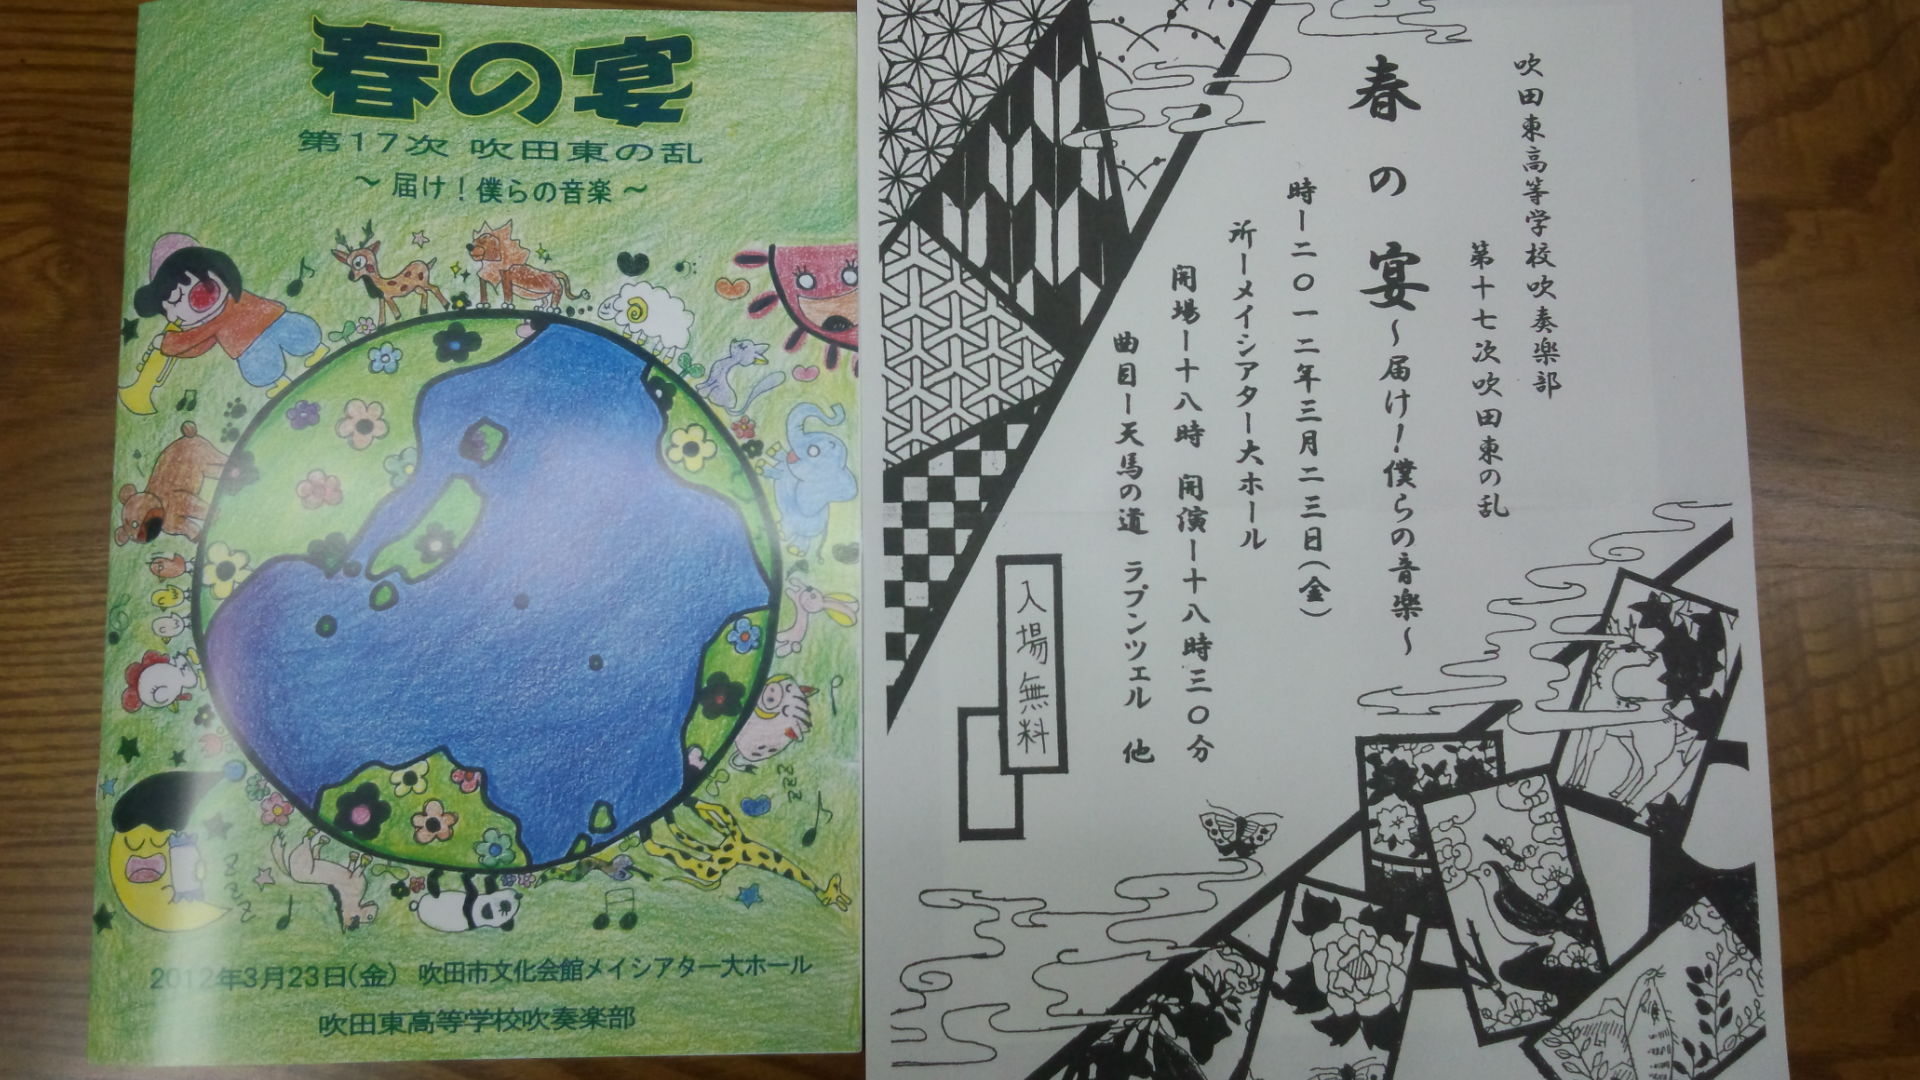 春の宴
第17次 吹田東の乱
～ 届け！僕らの音楽 ～
2012年3月23日(金) 吹田市文化会館メイシアター大ホール
吹田東高等学校吹奏楽部
吹田東高等学校吹奏楽部
第十七次吹田東の乱
春の宴～届け！僕らの音楽～
時ー二〇一二年三月二三日(金)
所ーメイシアター大ホール
開場ー十八時 開演ー十八時三〇分
曲目ー天馬の道 ラプンツェル 他
入場無料
zzz
zzz